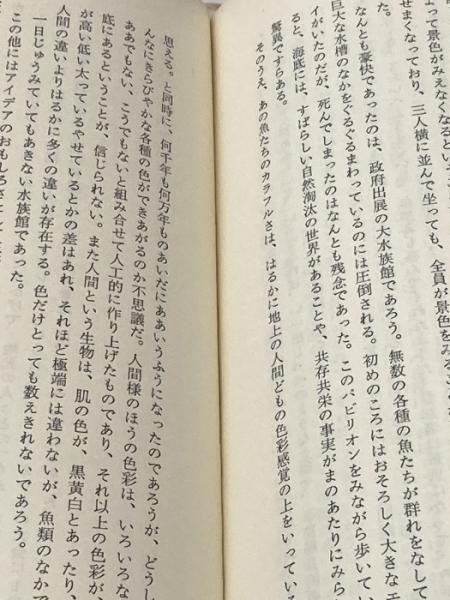 よって景色がみえなくなるという
せまくなっており、三人横に並んで坐っても、全員が景色をみること
なんとも豪快であったのは、政府出展の大水族館であろう。無数の各種の魚たちが群れをなして
巨大な水槽のなかをぐるぐるまわっているのには圧倒される。初めのころにはおそろしく大きなエ
イがいたのだが、死んでしまったのはなんとも残念であった。このパビリオンをみながら歩いてい
ると、海底には、すばらしい自然淘汰の世界があることや、共存共栄の事実がまのあたりにみら
驚異ですらある。
そのうえ、あの魚たちのカラフルさは、はるかに地上の人間どもの色彩感覚の上をいっている
思える。と同時に、何千年も何万年ものあいだにああいうふうになったのであろうが、どうし
んなにきらびやかな各種の色ができあがるのか不思議だ。人間様のほうの色彩は、いろいろな
ああでもない、こうでもないと組み合せて人工的に作り上げたものであり、それ以上の色彩が、
底にあるということが、信じられない。また人間という生物は、肌の色が、黒黄白とあったり、
が高い低い太っているやせているとかの差はあれ、それほど極端には違わないが、魚類のなかで
人間の違いよりはるかに多くの違いが存在する。色だけとっても数えきれないであろう。
一日じゅうみていてもあきない水族館であった。
この他にはアイデアのおもしろさとして